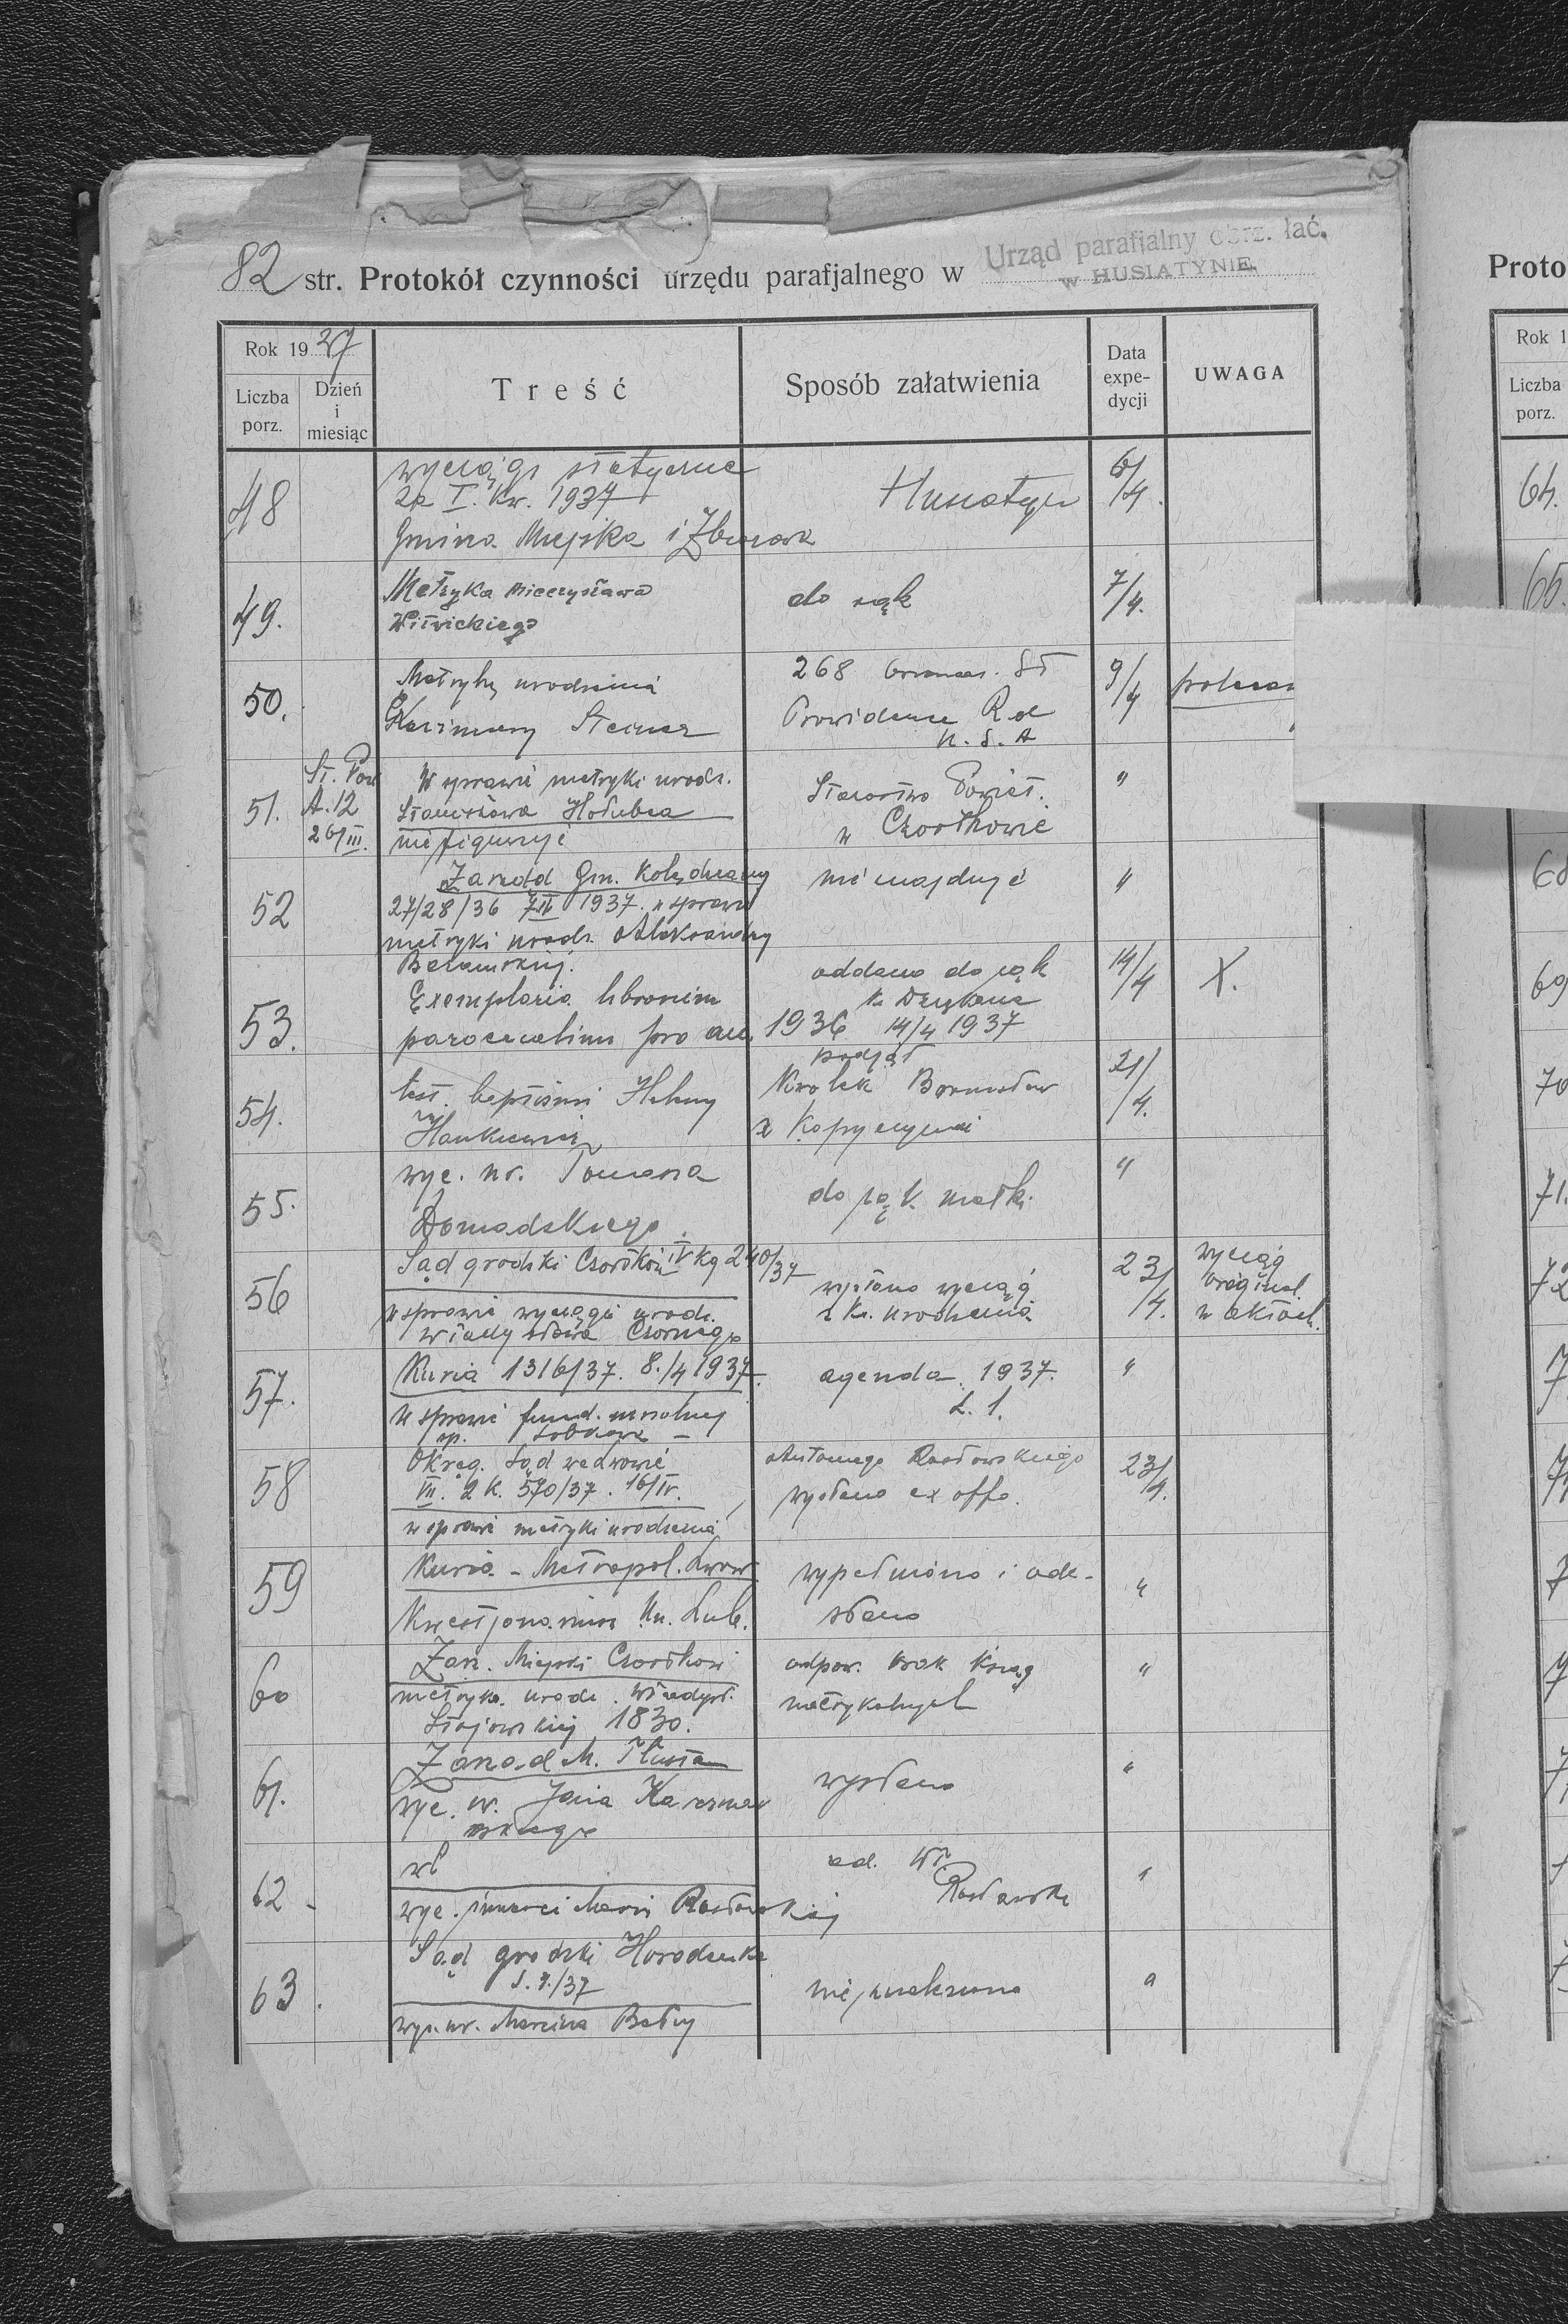 82 str. Protokół czynności urzędu parafjalnego w
Urząd parafialny obrz. łać.
w HUSIATYNIE
Rok 19 37
Liczba porz.
Dzień i miesiąc
Treść
Sposób załatwienia
Data expe-
dycji
UWAGA
48
wyciągi
za I. kw. 1937
Gmina Miejska i
Husiatyn
6/4.
49.
Metryka Mieczysława
Witwickiego
do rąk
7/4.
50.
Metryka urodzenia
Kazimiery Steiner
268
Providence R. d
U. S. A
9/4
51.
St. Pow
A. 12
26/III.
W sprawie metryki urodz.
Stanisława Hołubca
nie figuruje
Starostwo Powiat.
w Czortkowie
"
52
Zarząd Gm. Kolędziany
27/28/36 1937. w sprawie
metryki urodz. Aleksandry
nie znajduje
"
53.
Exemplaria librorum
parocchialium pro an. 1936
oddano do rąk
ks. Dziekana
14/4 1937
14/4
X.
54.
test. baptismi Heleny
Hankiewicz
podjął
Krolik Bronisław
z Kopyczyniec
21/4.
55.
wyc. ur. Tomasza
Domadzkiego.
do rąk matki
"
56
Sąd grodzki Czortków IV Kg 240/37
w sprawie wyciągu urodz.
Władysława Czornego
wysłano wyciąg
z ks. urodzenia
23/4.
wyciąg
original.
w aktach.
57.
Kuria 1316/37. 8./4 1937.
w sprawie fund. mszalnej
agenda 1937.
L. 1.
"
58
Okręg. Sąd we Lwowie
VII. 2 K. 570/37. 16/IV.
w sprawie metryki urodzenia
Antoniego Rosłowskiego
wysłano ex offo.
23/4.
59
Kuria - Metropol. Lwow
Kwestjonariusz
wypełniono i ode-
słano
"
60
Zarz. Miejski Czortków
metryka urodz. Władysł.
1830.
odpow. brak ksiąg
metrykalnych
"
61.
Zarząd M. Tłuste
wyc. ur. Jana
wysłano
"
62 -
wyc. śmierci Marii Rosłowskiej
"
63.
Sąd grodzki Horodenka
wyc. ur. Marcina
"
Proto
Rok 1
Liczba porz.
64.
65.
68
69
70
71.